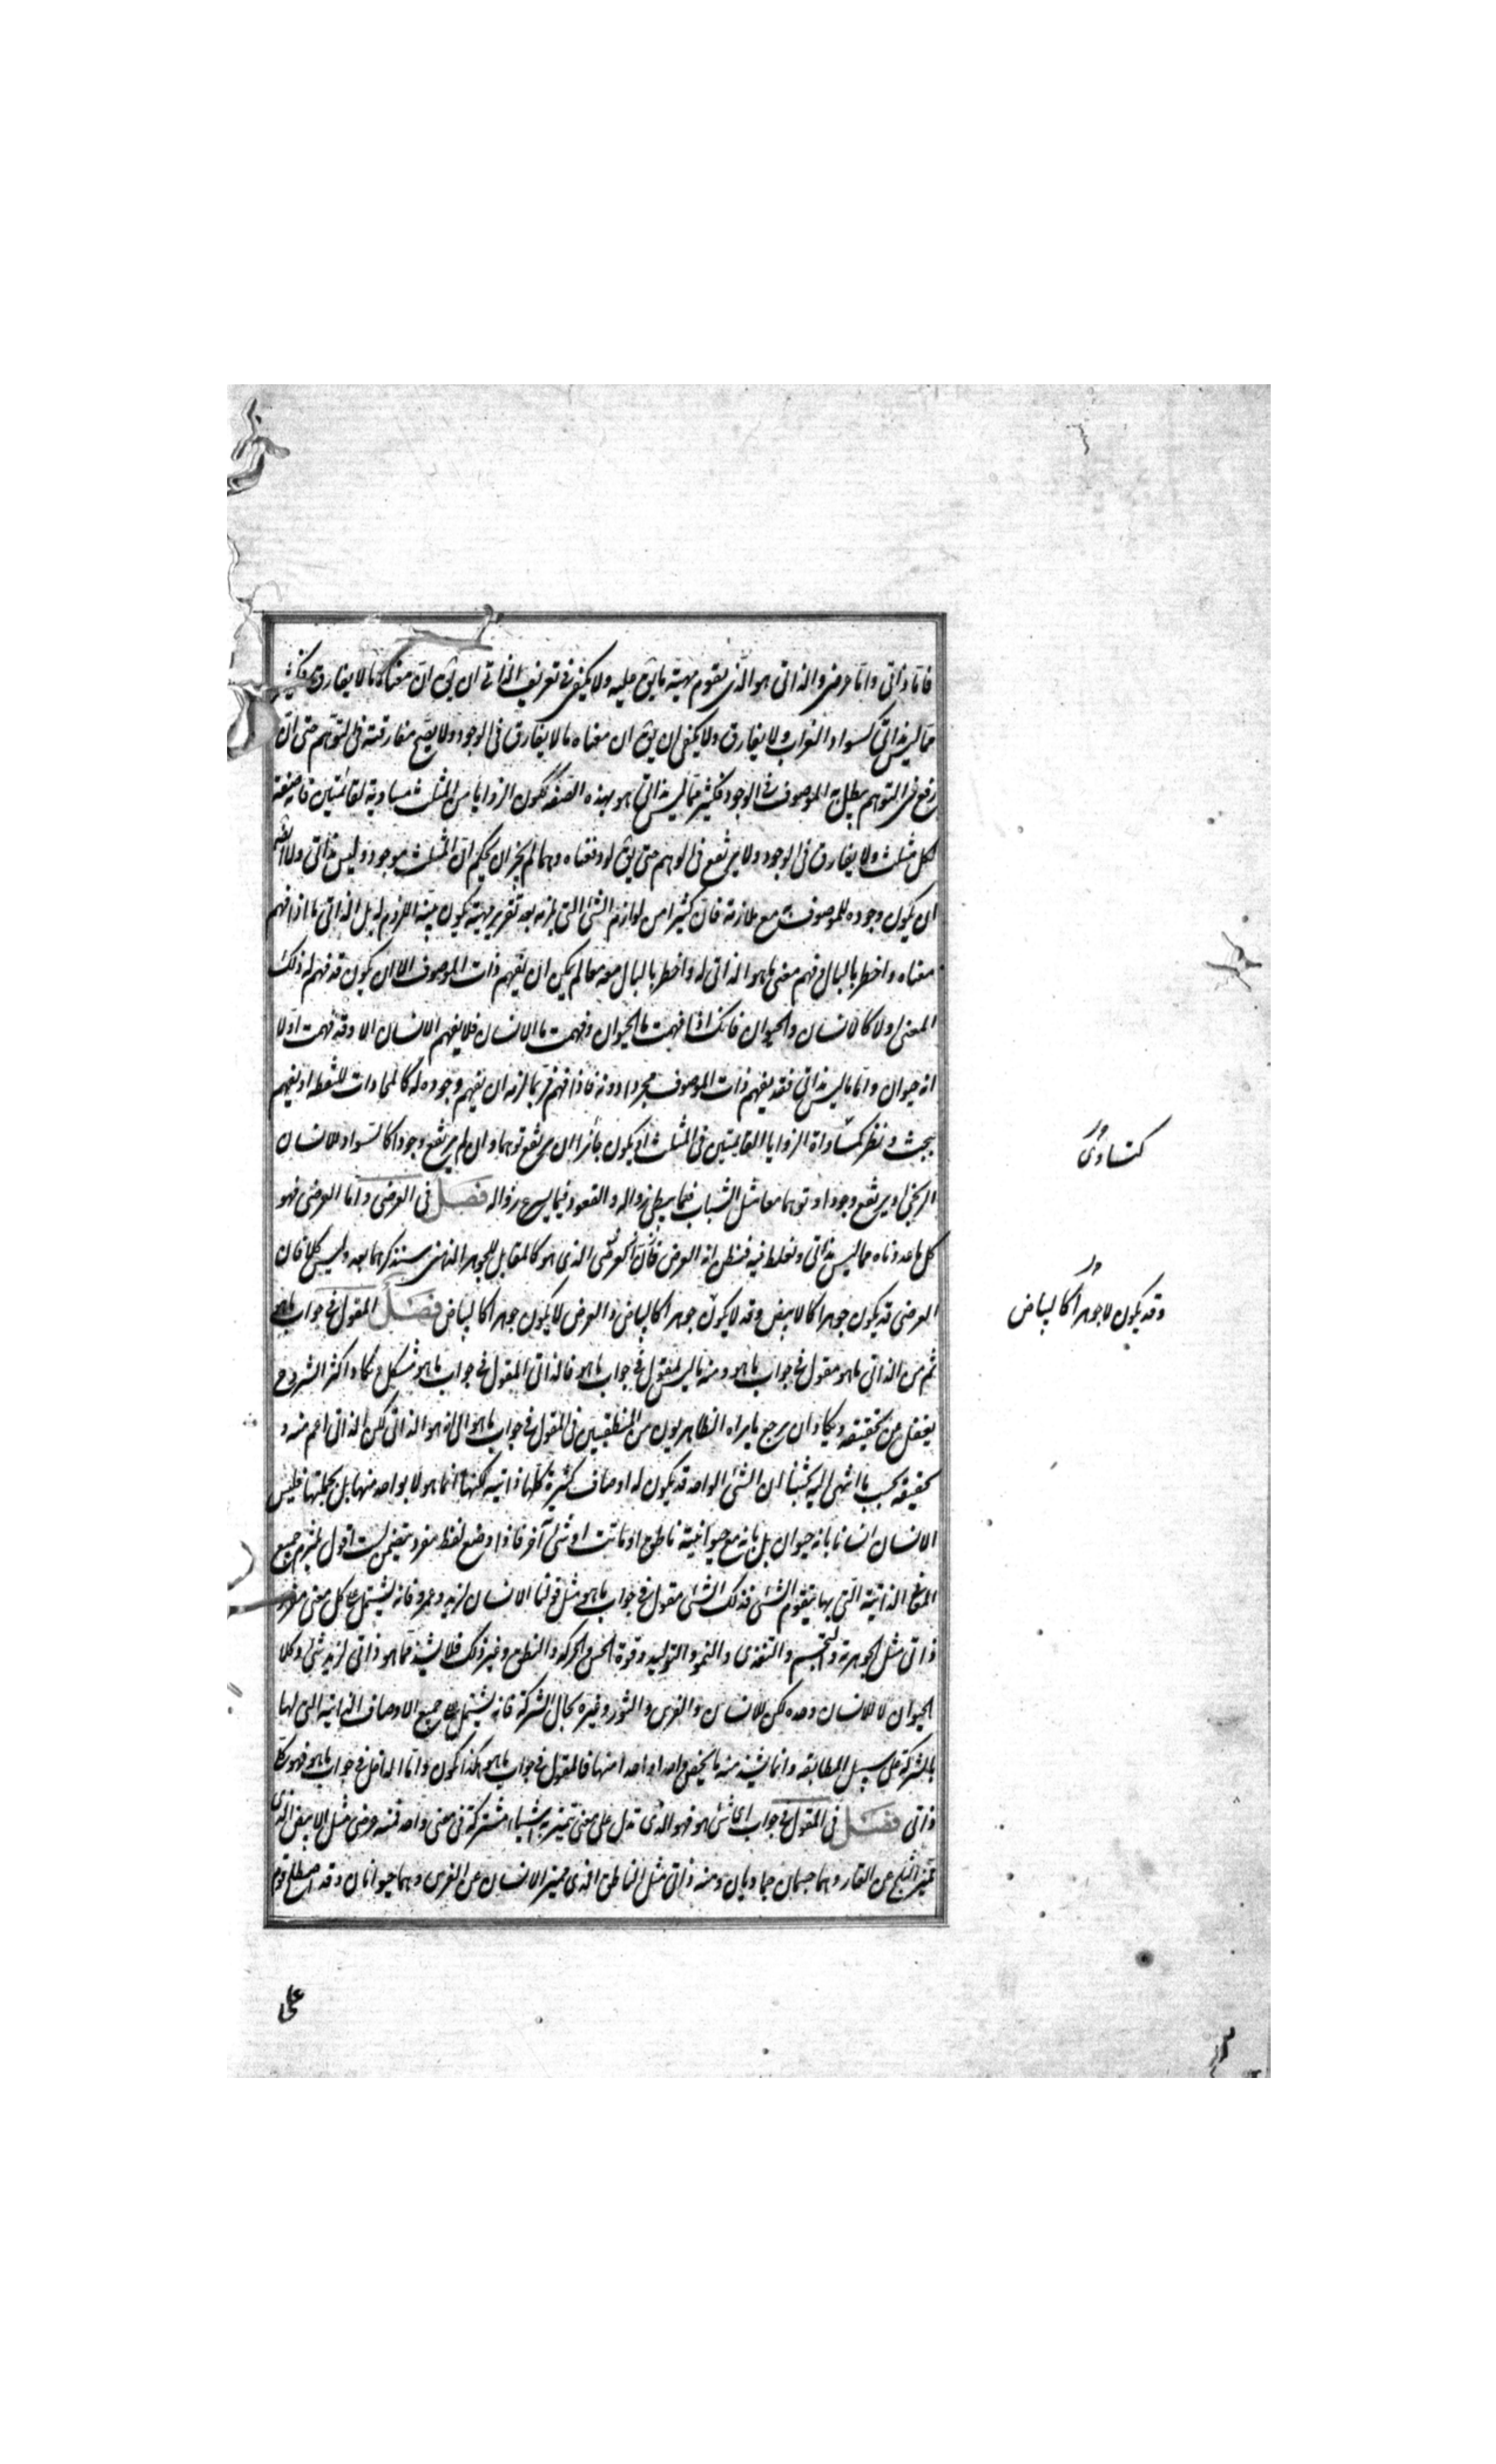 فاما ذاتى واما عرضى والذاتى هو الذى يقوم مهية ما يق عليه ولا يكفى فى تعريف الذاتى ان يق ان معناه ما لا يفارق فكثير
مما ليس بذاتى كسواد الغراب لا يفارق ولا يكفى ان يق ان معناه ما لا يفارق فى الوجود ولا يصح مفارقته فى التوهم حتى ان
رفع فى التوهم يبطل به الموصوف فى الوجود فكثير مما ليس بذاتى هو بهذه الصفة ككون الزوايا من المثلث مساوية لقائمتين فانه صفة
لكل مثلث ولا يفارق فى الوجود ولا يرتفع فى الوهم حتى يق لو رفعناه وهما لم يجز ان يحكم ان المثلث موجود وليس بذاتى ولا ايضا
ان يكون وجوده للموصوف مع ملازمة فان كثيرا من لوازم الشئ التى يلزمه بعد تقرير مهيته يكون بينة اللزوم له بل الذاتى ما اذا فهم
معناه واخطر بالبال وفهم معنى ما هو الذاتى له واخطر بالبال معه معا لم يمكن ان يفهم ذات الموصوف الا ان يكون قد فهم له ذلك
المعنى اولا كالانسان والحيوان فانك اذا فهمت ما الحيوان وفهمت ما الانسان فلا يفهم الانسان الا وقد فهمت اولا
انه حيوان واما ما ليس بذاتى فقد يفهم ذات الموصوف مجردا دونه فاذا فهم فربما لزمه ان يفهم وجوده له كالمحاذات للنقطة او يفهم
ببحث ونظر كمساواة الزوايا القائمتين فى المثلث او يكون جائزا ان يرتفع توهما وان لم يرتفع وجودا كالسواد للانسان
الزنجى او يرتفع وجودا وتوهما معا مثل الشباب فيما يبطئ زواله والقعود فيما يسرع زواله فصل فى العرضى واما العرضى فهو
كل ما عددناه مما ليس بذاتى ونغلط فيه فنظن انه العرض فان العرض الذى هو كالمقابل للجوهر الذين سنذكرهما بعد وليس كل فان
العرضى قد يكون جوهرا كالابيض وقد لا يكون جوهرا كالبياض والعرض لا يكون جوهرا كالبياض فصل المقول فى جواب ما هو
ثم من الذاتى ما هو مقول فى جواب ما هو ومنه ما ليس بمقول فى جواب ما هو فالذاتى المقول فى جواب ما هو مشكل وكاد اكثر الشروح
يغفل عن تحقيقه ويكاد ان يرجع ما يراه الظاهريون من المنطقيين فى المقول فى جواب ما هو الى انه هو الذاتى لكن الذاتى اعم منه و
تحقيقه بحسب ما انتهى اليه بحثنا ان الشئ الواحد قد يكون له اوصاف كثيرة كلها ذاتية لكنها انما هو لا بواحد منها بل بجملتها فليس
الانسان انسانا بانه حيوان بل بانه مع حيوانية ناطق او مائت او شئ آخر فاذا وضع لفظ مفرد يتضمن لست اقول يلتزم جميع
المعانى الذاتية التى بها يتقوم الشئ فذلك الشئ مقول فى جواب ما هو مثل قولنا الانسان لزيد وعمرو فانه يشتمل على كل معنى مفرد
ذاتى مثل الجوهرية والتجسم والتغذى والنمو والتوليد وقوة الحس والحركة والنطق وغير ذلك فلا يشذ مما هو ذاتى لزيد شئ وكذا
الحيوان لا للانسان وحده لكن للانسان والفرس والثور وغيره بحال الشركة فانه يشتمل على جميع الاوصاف الذاتية التى لها
بالشركة على سبيل المطابقة وانما يشذ منه ما يخص واحدا واحدا منها فالمقول فى جواب ما هو هكذا يكون واما الداخل فى جواب ما هو فهو كل
ذاتى فصل فى المقول فى جواب اى شئ هو فهو الذى تدل على معنى تتميز به اشياء مشتركة فى معنى واحد فمنه عرضى مثل الابيض الذى
تميز الثلج من القار وهما جسمان جماديان ومنه ذاتى مثل الناطق الذى يميز الانسان من الفرس وهما حيوانان وقد اصطلح قوم
كتساوى
وقد يكون لا جوهرا كالبياض
على